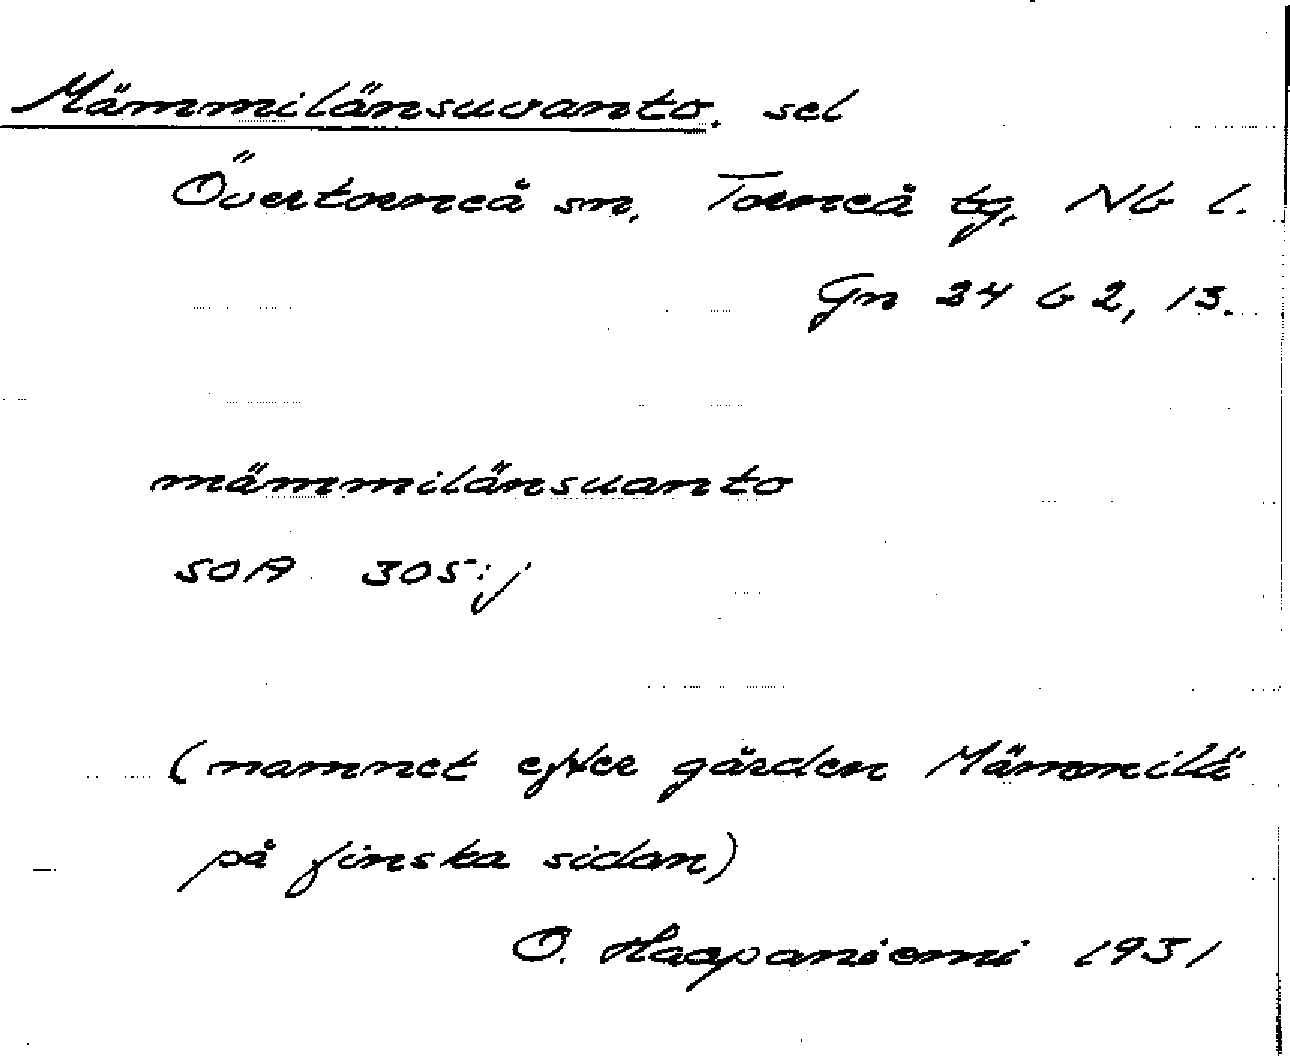 Mämmilänsuvanto. sel
Övertorneå sn, Torneå tg, Nb l.
Gn 34 b 2, 13.
mämmilänsuanto
SOA 305:j
(namnet efter gården Mämmilä
på finska sidan)
O. Haapaniemi 1931